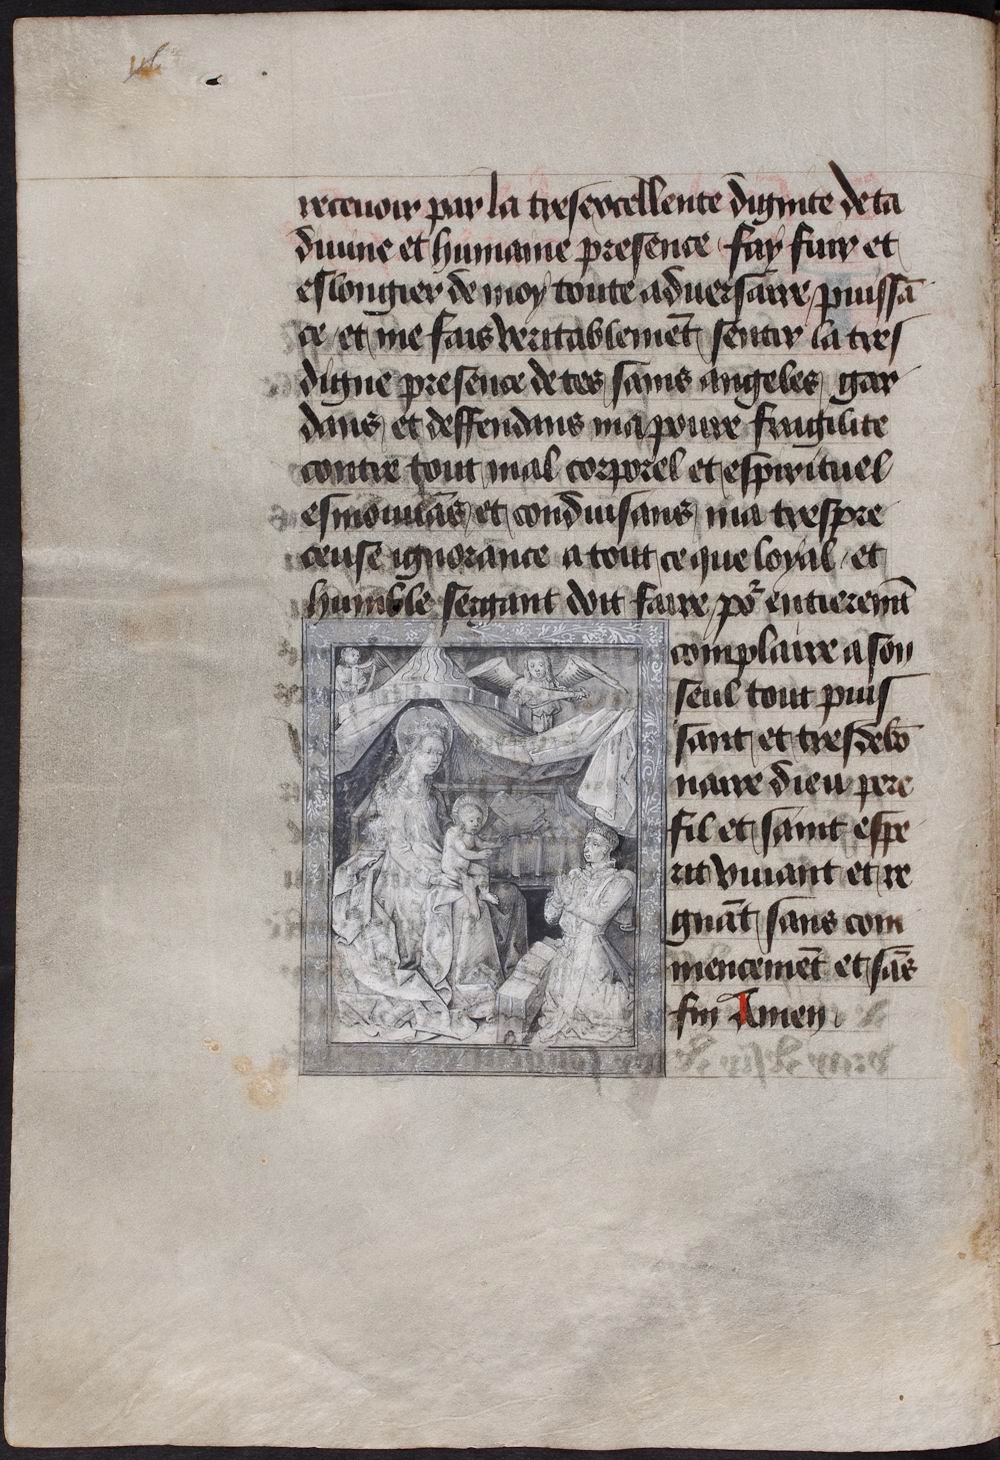 recevoir par la tresexcellente dignite de ta
divine et humaine presence fay fuir et
eslongier de moy toute adversaire puissā
ce et me fais veritablemēt sentir la tres
digne presence de tes sains angeles gar
dans et deffendans ma povre fragilite
contre tout mal corporel et espirituel
esmouvās et conduisans ma trespre
ceuse ignorance a tout ce que loyal et
humble sergant doit faire poᷣ entieremt̄
complaire a son
seul tout puis
sant et tresdebō
naire dieu pere
fil et saint espe
rit vivant et re
gnāt sans com
mencemēt et sās
fin Amen